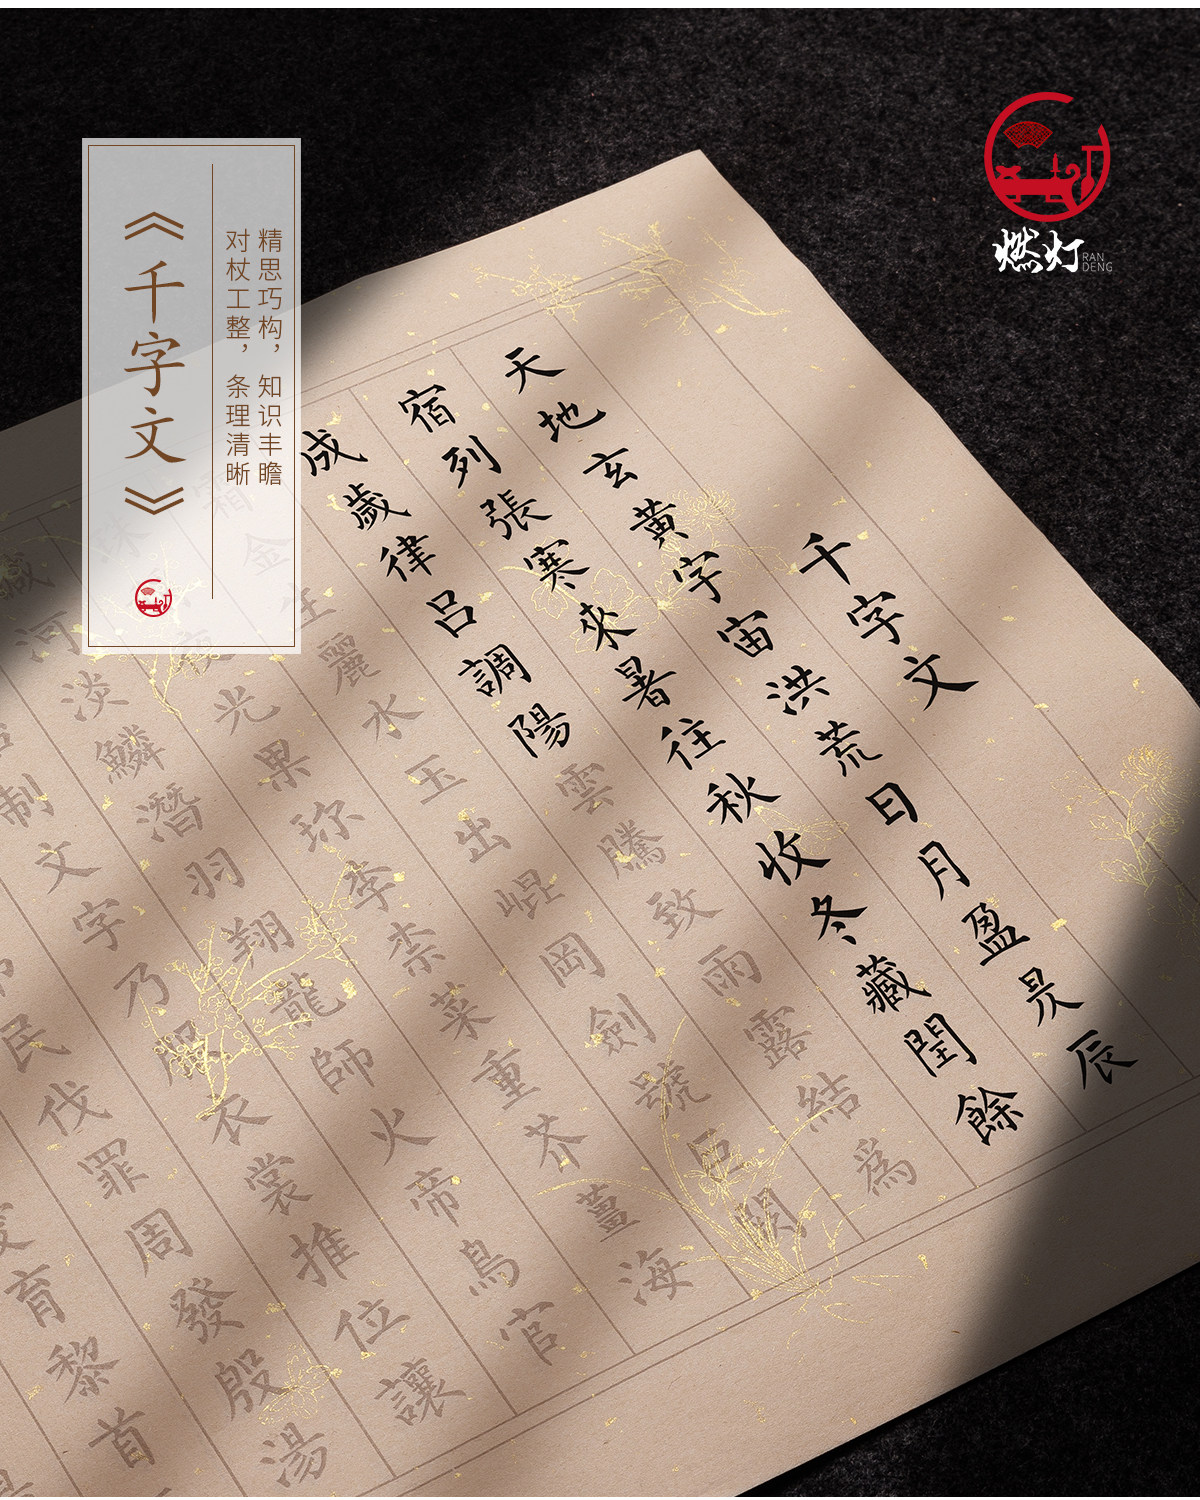 《千字文》
精思巧构，知识丰瞻
对杖工整，条理清晰
燃灯
RAN
DENG
千字文
天地玄黄宇宙洪荒日月盈昃辰
宿列張寒來暑往秋收冬藏閏餘
成歲律呂調陽雲騰致雨露結爲
霜金生麗水玉出崐岡劍號巨闕
珠夜光果珍李柰菜重芥薑海
鹹河淡鱗潛羽翔龍師火帝鳥官
制文字乃服衣裳推位讓
民伐罪周發殷湯
育黎首